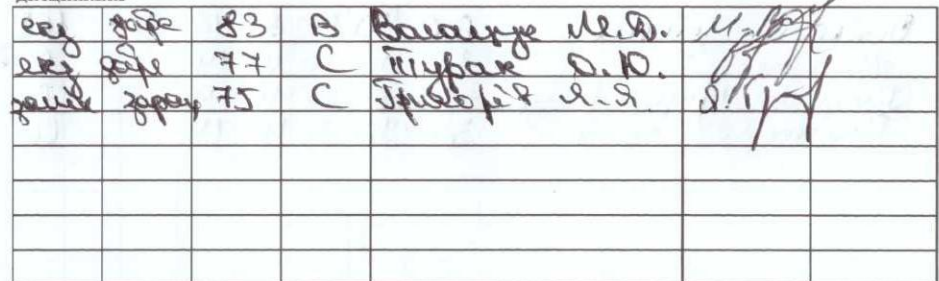 екз добре 83 B М.Д.
екз добре 77 C Турак О.Ю.
залік зарах 75 C Григорів Я.Я.